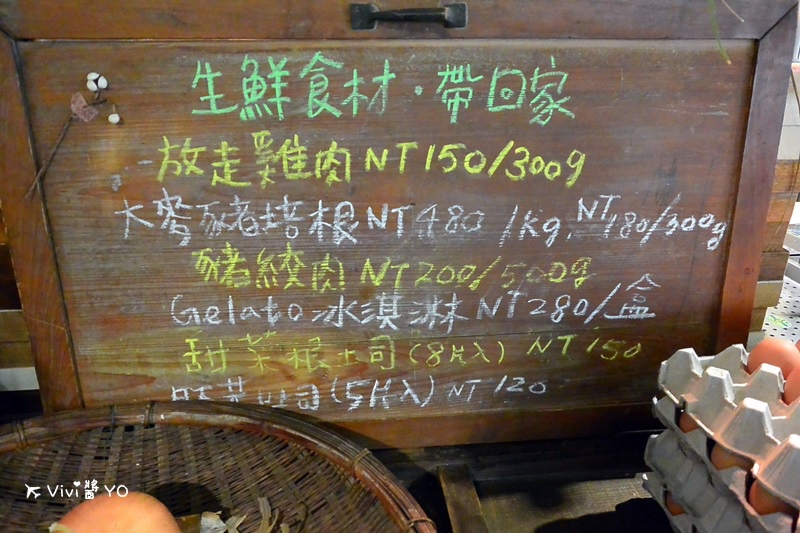 生鮮食材·帶回家
放走雞肉 NT 150/300g
大麥豬培根 NT 480 /Kg. NT 180/300g
豬絞肉 NT 200/500g
Gelato 冰淇淋 NT 280/盒
甜菜根土司(8片入) NT 150
司(5片入) NT 120
Vivi醬YO